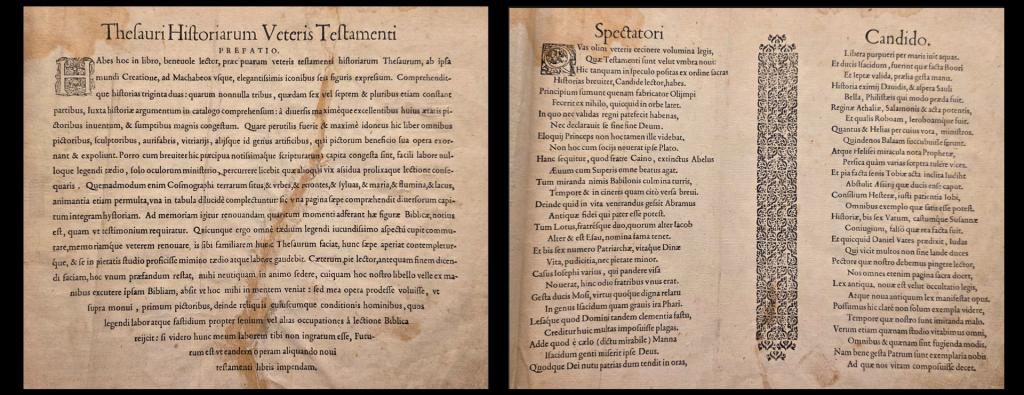 Thesauri Historiarum Veteris Testamenti
PREFATIO.
HAbes hoc in libro, beneuole lector, præcipuarum veteris testamenti historiarum Thesaurum, ab ipsa
mundi Creatione, ad Machabeos vsque, elegantissimis iconibus seu figuris expressum. Comprehendit-
que historias triginta duas: quarum nonnulla tribus, quædam sex vel septem & pluribus etiam constant
partibus, luxta historiæ argumentum in catalogo comprehensum: à diuersis maximèque excellentibus huius ætatis pi-
ctoribus inuentum, & sumptibus magnis congestum. Quare perutilis fuerit & maximè idoneus hic liber omnibus
pictoribus, sculptoribus, aurifabris, vitriarijs, alijsque id genus artificibus, qui pictorum beneficio sua opera exor-
nant & expoliunt. Porro cum breuiter hic præcipua notissimaque scripturarum capita congesta sint, facili labore nul-
loque legendi tædio, solo oculorum ministerio, percurrere licebit quæ alioqui vix assidua prolixaque lectione conse-
quaris. Quemadmodum enim Cosmographi terrarum situs, & vrbes, & montes, & syluas, & maria, & flumina, & lacus,
animantia etiam permulta, vna in tabula dilucidè complectuntur: sic vna pagina sæpe comprehendit diuersorum capi-
tum integram historiam. Ad memoriam igitur renouandam quantum momenti adferant hæ figuræ Biblicæ, notius
est, quam vt testimonium requiratur. Quicunque ergo omne tædium legendi iucundissimo aspectu cupit commu-
tare, memoriamque veterem renouare, is sibi familiarem hunc Thesaurum faciat, hunc sæpe aperiat contempletur-
que, & se in pietatis studio proficisse minimo tædio atque labore gaudebit. Cæterum, pie lector, antequam finem dicen-
di faciam, hoc vnum præfandum restat, mihi neutiquam in animo sedere, cuiquam hoc nostro libello velle ex ma-
nibus excutere ipsam Bibliam, absit vt hoc mihi in mentem veniat: sed mea opera prodesse voluisse, vt
supra monui, primum pictoribus, deinde reliquis cuiuscumque conditionis hominibus, quos
legendi labor atque fastidium propter senium vel alias occupationes à lectione Biblica
reijcit: si videro hunc meum laborem tibi non ingratum esse, Futu-
rum est vt eandem operam aliquando noui
testamenti libris impendam.
Spectatori
QVas olim veteris cecinere volumina legis,
Quæ Testamenti sunt velut vmbra noui:
Hic tanquam in speculo positas ex ordine sacras
Historias breuiter, Candide lector, habes.
Principium sumunt quenam fabricator Olijmpi
Fecerit ex nihilo, quicquid in orbe latet.
In quo nec validas regni patefecit habenas,
Nec declarauit se sine fine Deum.
Eloquij Princeps non hoc tamen ille videbat,
Non hoc cum socijs nouerat ipse Plato.
Hanc sequitur, quod fratre Caino, extinctus Abelus
Æuum cum Superis omne beatus agat.
Tum miranda nimis Babilonis culmina turris,
Tempore & in cineris quam citò versa breui.
Deinde quid in vita venerandus gesist Abramus
Antiquæ fidei qui pater esse potest.
Tum Lotus, fratresque duo, quorum alter Iacob
Alter & est Esau, nomina fama tenet.
Et bis sex numero Patriarchæ, vitaque Dinæ
Vita, pudicitia, nec pietate minor.
Casus Iosephi varius, qui pandere visa
Nouerat, hinc odio fratribus vnus erat.
Gesta ducis Mosi, virtus quoque digna relaru
In genus Isacidum quam grauis ira Phari.
Lesaque quod Domini tandem clementia fastu,
Creditur huic multas imposuisse plagas.
Adde quod è cælo (dictu mirabile) Manna
Isacidum genti miserit ipse Deus.
Quodque Dei nutu patrias dum tendit in oras,
Candido.
Libera purpurei per maris iuit aquas.
Et ducis Isacidum, fuerint quæ facta
Et lepta valida, prælia gesta manu.
Historia eximij Dauidis, & aspera Sauli
Bella, Philistæis qui modo præda fuit.
Reginæ Athaliæ, Salamonis & acta potentis,
Et qualis Roboam, Ieroboamque fuit.
Quantus & Helias per cuius vota, ministros.
Quindenos Balaam succubuisse ferunt.
Atque Helisei miracula nota Prophetæ,
Persica quàm varias sceptra tulêre vices.
Et pia facta senis Tobiæ acta inclita Iudiht
Abstulit Assirij quæ ducis ense caput.
Consilium Hesteræ, iusti patientia Iobi,
Omnibus exemplo quæ satis esse potest.
Historiæ, bis sex Vatum, castumque Susannæ
Coniugium, falso quæ rea facta fuit.
Et quicquid Daniel Vates prædixit, Iudas
Qui vicit multos non sine laude duces
Pectore quæ nostro debemus pingere lector,
Nos omnes etenim pagina sacra docet,
Lex antiqua, nouæ est velut occultatio legis,
Atque noua antiquum lex manifestat opus.
Possumus hic claré non solum exempla videre,
Tempore quæ nostro sunt imitanda malo.
Verum etiam quænam studio vitabimus omni,
Omnibus & quænam sint fugienda modis.
Nam bene gesta Patrum sunt exemplaria nobis
Ad quæ nos vitam composuisse decet.